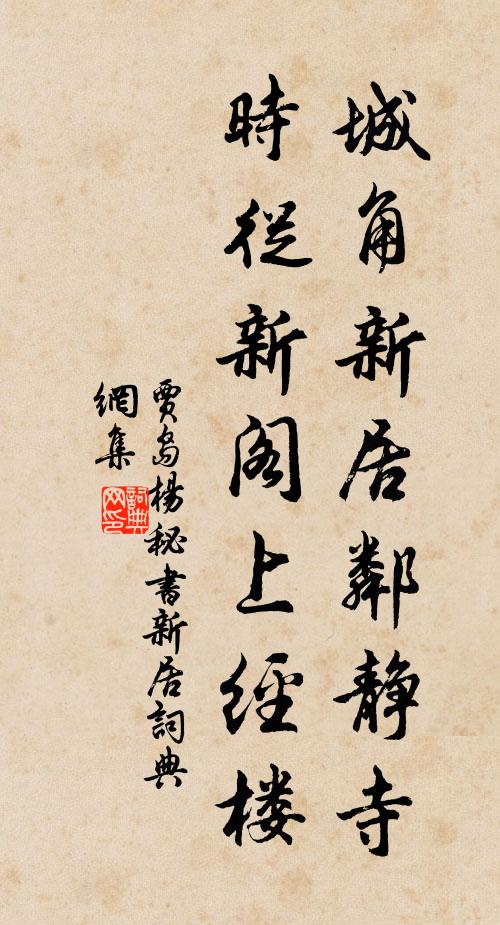 城角新居鄰靜寺
時從新阁上經楼
賈島楊秘書新居詞典
網集
詞典
网印